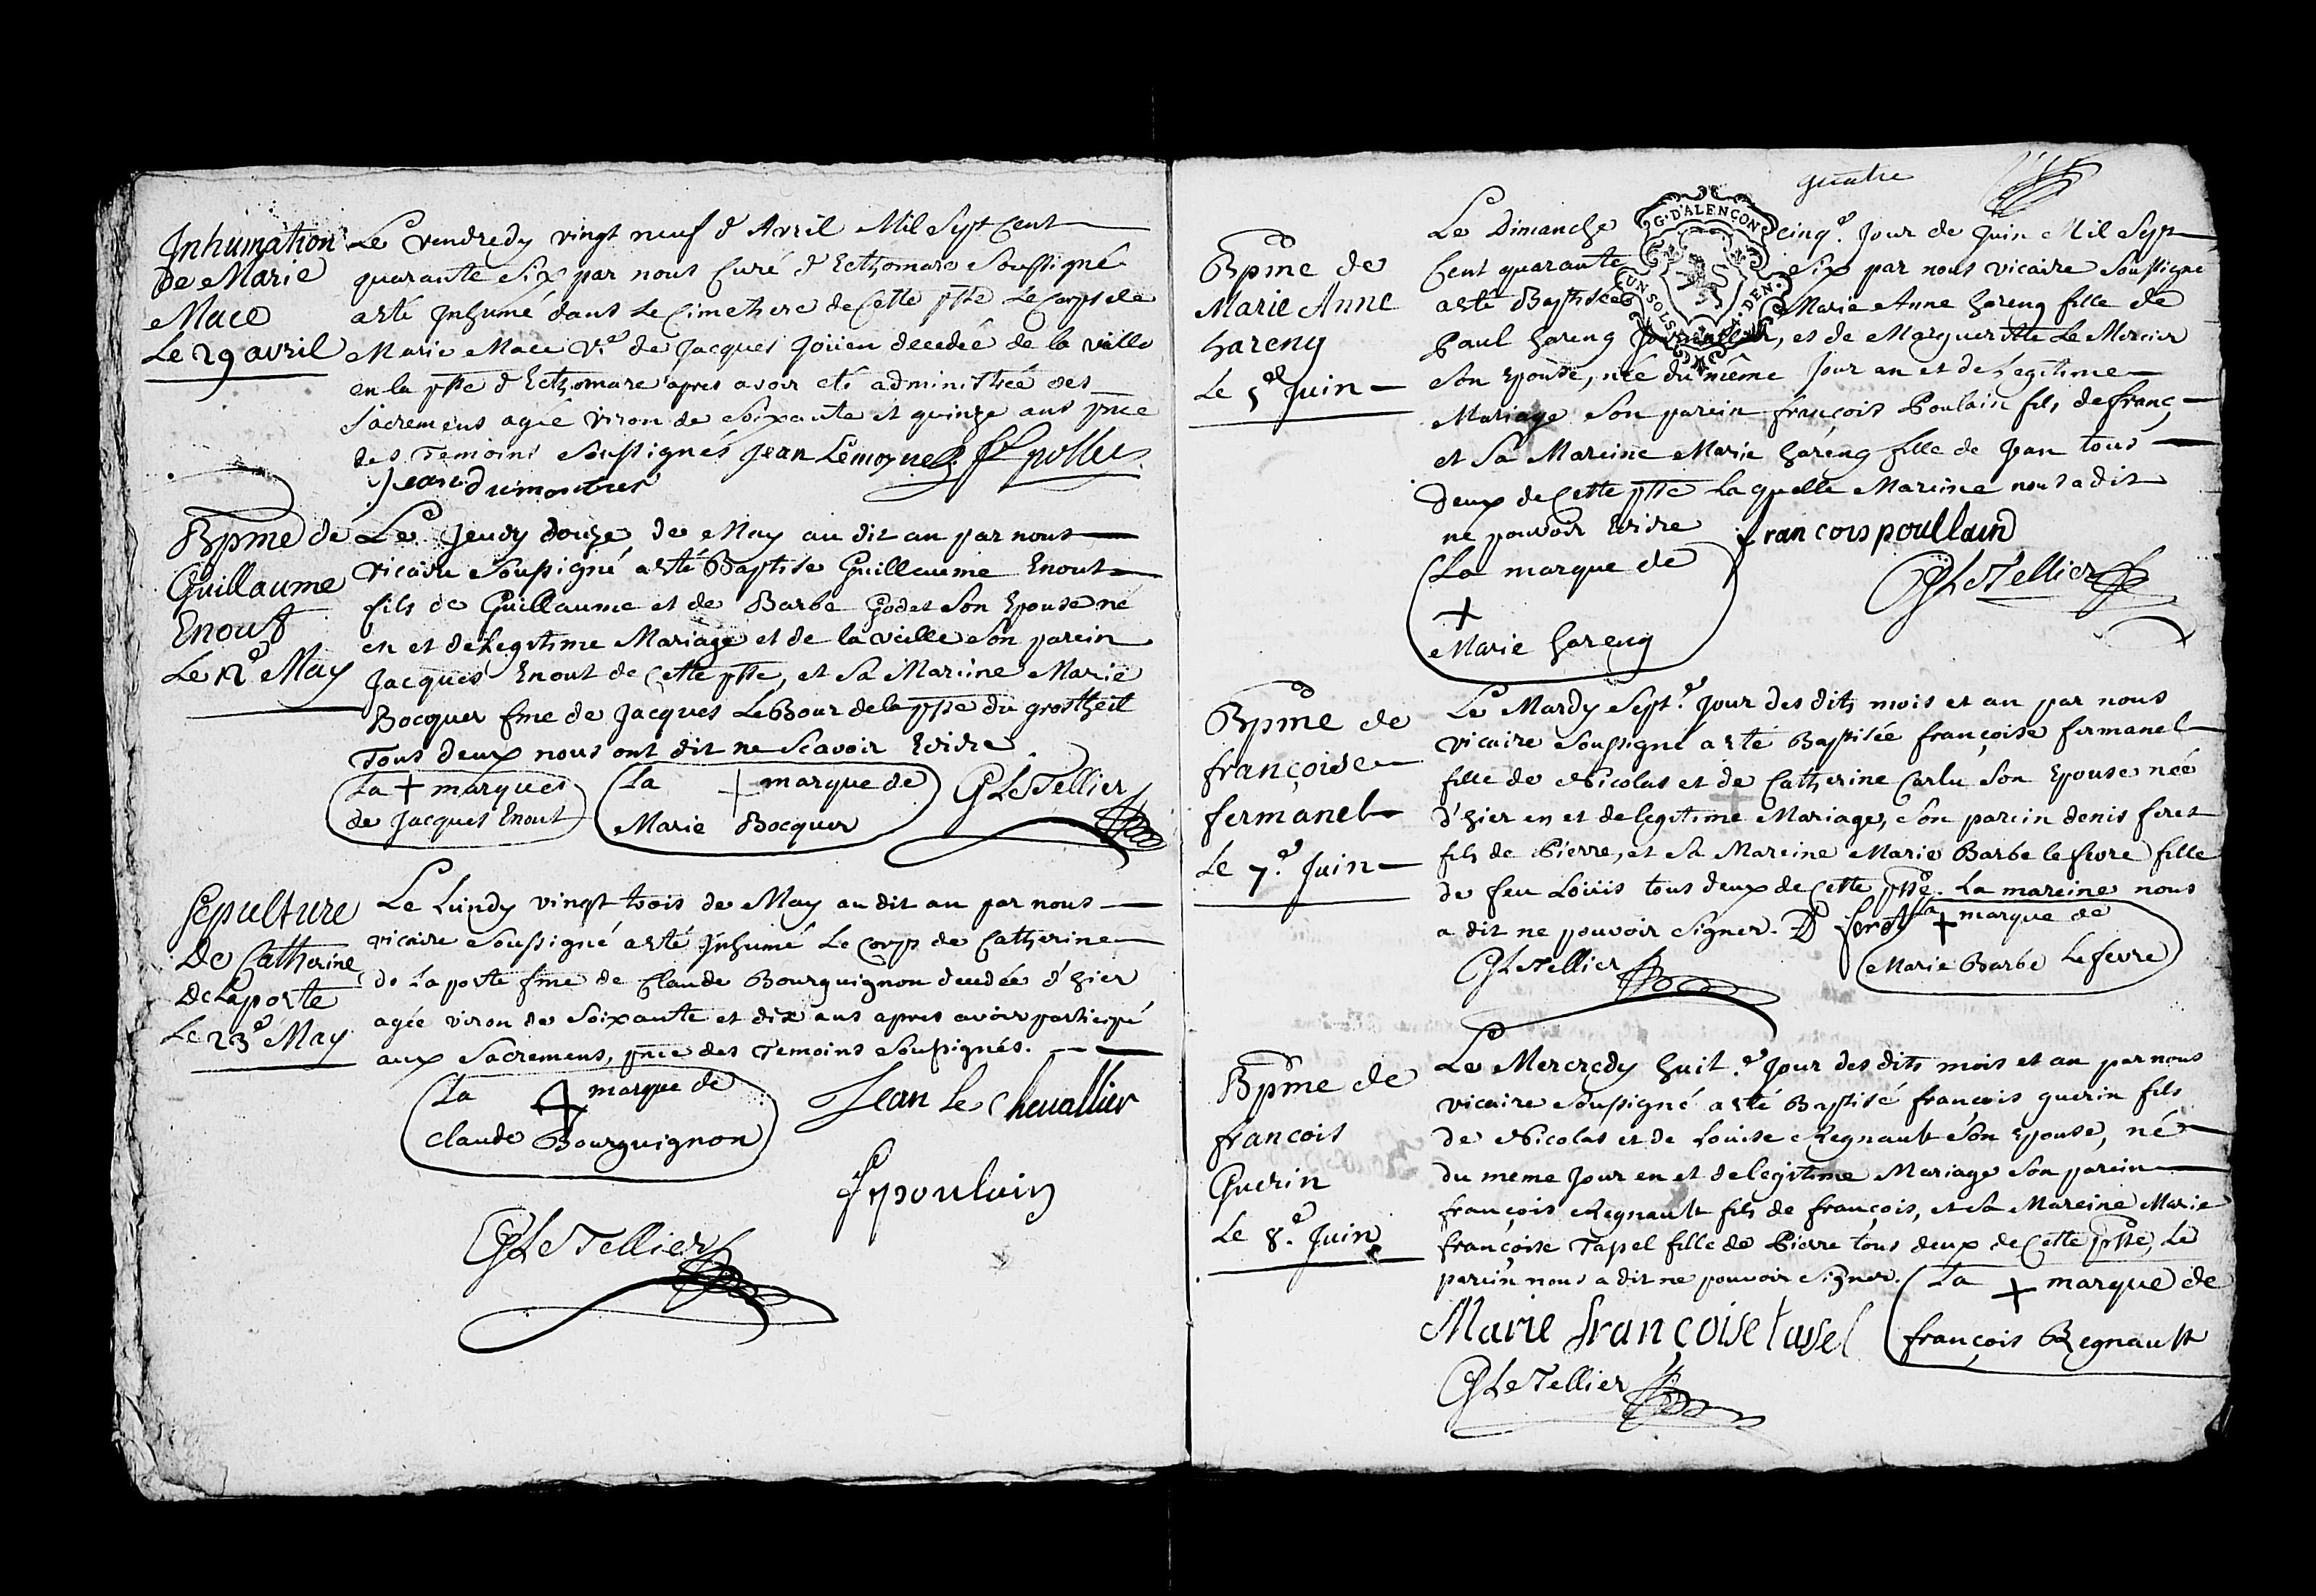 Inhumation
de Marie
Mace
Le 29 avril
Le Vendredy vingt neuf d'Avril Mil Sept Cent
quarante Six par nous Curé d'Ecthomare Soussigné
a eté Inhumé dans Le Cimetiere de Cette psse Le Corps de
Marie Mace Ve de Jacques decedée de la veille
en la psse d'Ecthomare apres avoir eté administrée des
Sacremens agée viron de Soixante et quinze ans pnce
des Temoins Soussignés Jean Lemoyne
Jean dumontier
Bpme de
Guillaume
Enout
Le 12e May
Le Jeudy douze de May au dit an par nous
vicaire Soussigné a eté Baptisé Guillaume Enout
fils de Guillaume et de Barbe Godet Son Epouse né
en et de Legitime Mariage et de la veille Son parein
Jacques Enout de Cette psse, et Sa Mareine Marie
Bocquer fme de Jacques LeBour de la psse du grostheil
Tous deux nous ont dit ne Scavoir Ecrire.
La + marque
de Jacques Enout
La + marque de
Marie Bocquer
G LeTellier
Sepulture
De Catherine
De Laporte
Le 23e May
Le Lundy vingt trois de May au dit an par nous
vicaire Soussigné a eté Inhumé Le Corps de Catherine
de Laporte fme de Claude Bourguignon decedée d'hier
agée viron de Soixante et dix ans apres avoir participé
aux Sacremens, pnce des Temoins Soussignés.
La + marque de
claude Bourguignon
Jean le chevallier
f poulain
G LeTellier
quatre
G. D'ALENÇON
UN SOL
DEN.
Bpme de
Marie Anne
hareng
Le 5e Juin
Le Dimanche cinqe. Jour de Juin Mil Sept
Cent quarante Six par nous vicaire Soussigné
a eté Baptisée Marie Anne hareng fille de
Paul hareng Journallier, et de Margueritte Le Mercier
Son Epouse, née du même Jour en et de Legitime
Mariage Son parein françois Poulain fils de franç
et Sa Mareine Marie hareng fille de Jean tous
deux de Cette psse Laquelle Mareine nous a dit
ne pouvoir Ecrire francois poullain
La marque de
+
Marie hareng
G LeTellier
Bpme de
françoise
fermanel
Le 7e. Juin
Le Mardy Septe. Jour des dits mois et an par nous
vicaire Soussigné a eté Baptisée françoise fermanel
fille de Nicolas et de Catherine Carlu Son Epouse née
d'hier en et de legitime Mariage, Son parein denis feret
fils de Pierre, et Sa Mareine Marie Barbe lefevre fille
de feu Loüis tous deux de Cette psse. La mareine nous
a dit ne pouvoir Signer. D feret
La + marque de
Marie Barbe Lefevre
G LeTellier
Bpme de
francois
Guerin
Le 8e. Juin
Le Mercredy huite. Jour des dits mois et an par nous
vicaire Soussigné a eté Baptisé françois guerin fils
de Nicolas et de Louise Regnault Son Epouse, né
du meme Jour en et de legitime Mariage Son parein
françois Regnault fils de françois, et Sa Mareine Marie
françoise Tassel fille de Pierre tous deux de Cette psse, Le
parein nous a dit ne pouvoir Signer.
La + marque de
françois Regnault
Marie françoise tassel
G LeTellier